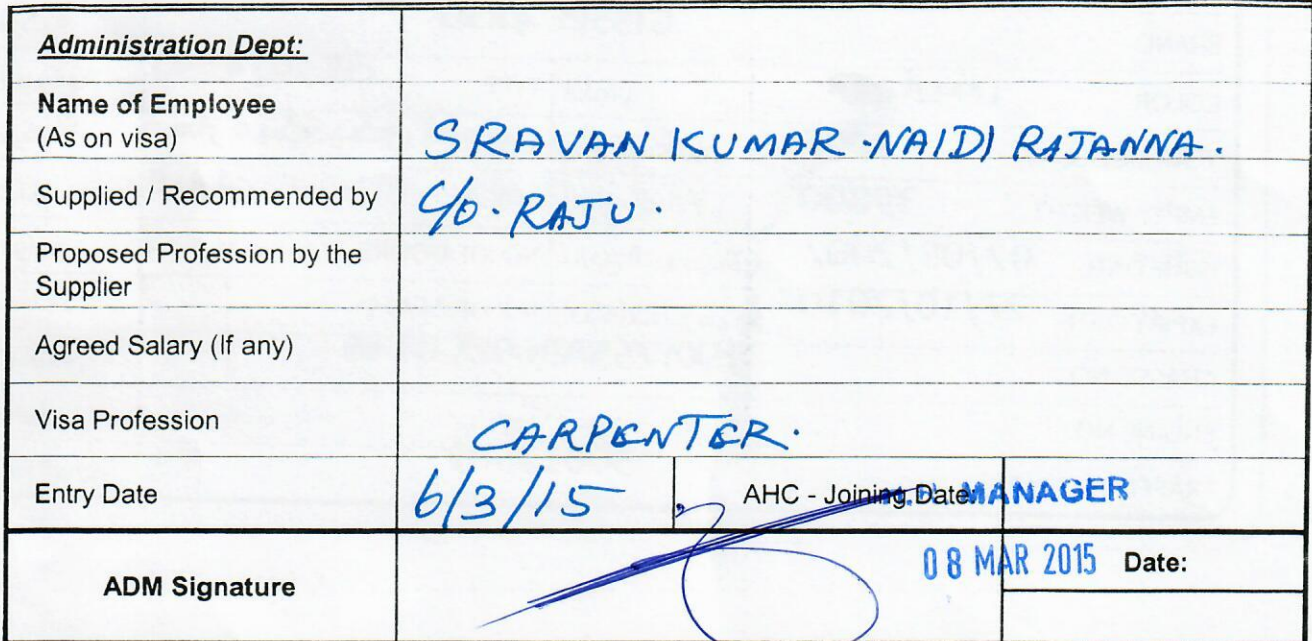 Administration Dept:
Name of Employee
(As on visa)
SRAVAN KUMAR NAIDI RAJANNA.
Supplied / Recommended by
C/O. RAJU.
Proposed Profession by the
Supplier
Agreed Salary (If any)
Visa Profession
CARPENTER.
Entry Date
6/3/15
AHC - Joining Date
MANAGER
ADM Signature
08 MAR 2015
Date: